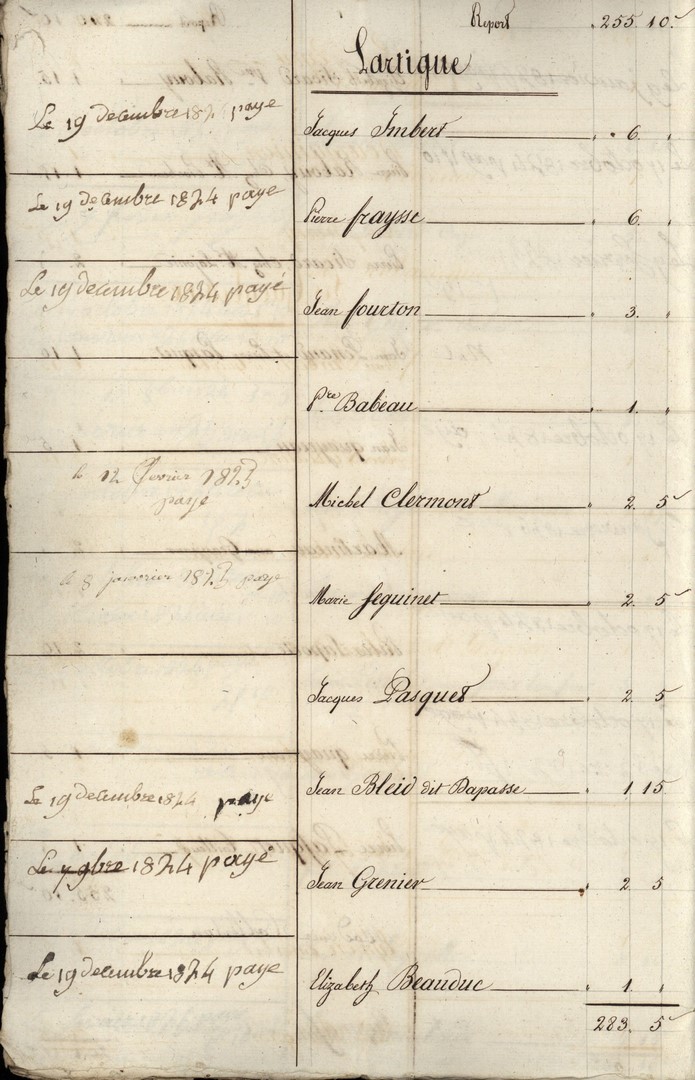 Report 255. 10.
Lartigue
Le 19 decembre 1824 paye
Jacques Imbert 6.
Le 19 decembre 1824 paye
Pierre fraysse 6.
Le 19 decembre 1824 payé
Jean fourton 3.
Pre Babeau 1.
le 12 fevrier 1825
paye
Michel Clermont 2. 5
le 8 janvrier 1825 paye
Marie Seguinet 2. 5
Jacques Pasquet 2. 5
Le 19 decembre 1824 paye
Jean Bleid dit Dapasse 1. 15
Le 7 9bre 1824 payé
Jean Grenier 2. 5
Le 19 decembre 1824 paye
Elizabeth Beauduc 1.
283. 5